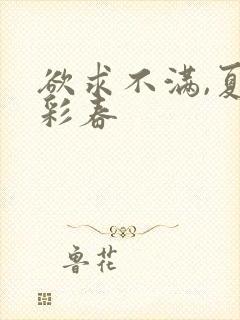 欲求不满,夏
彩春
鲁花